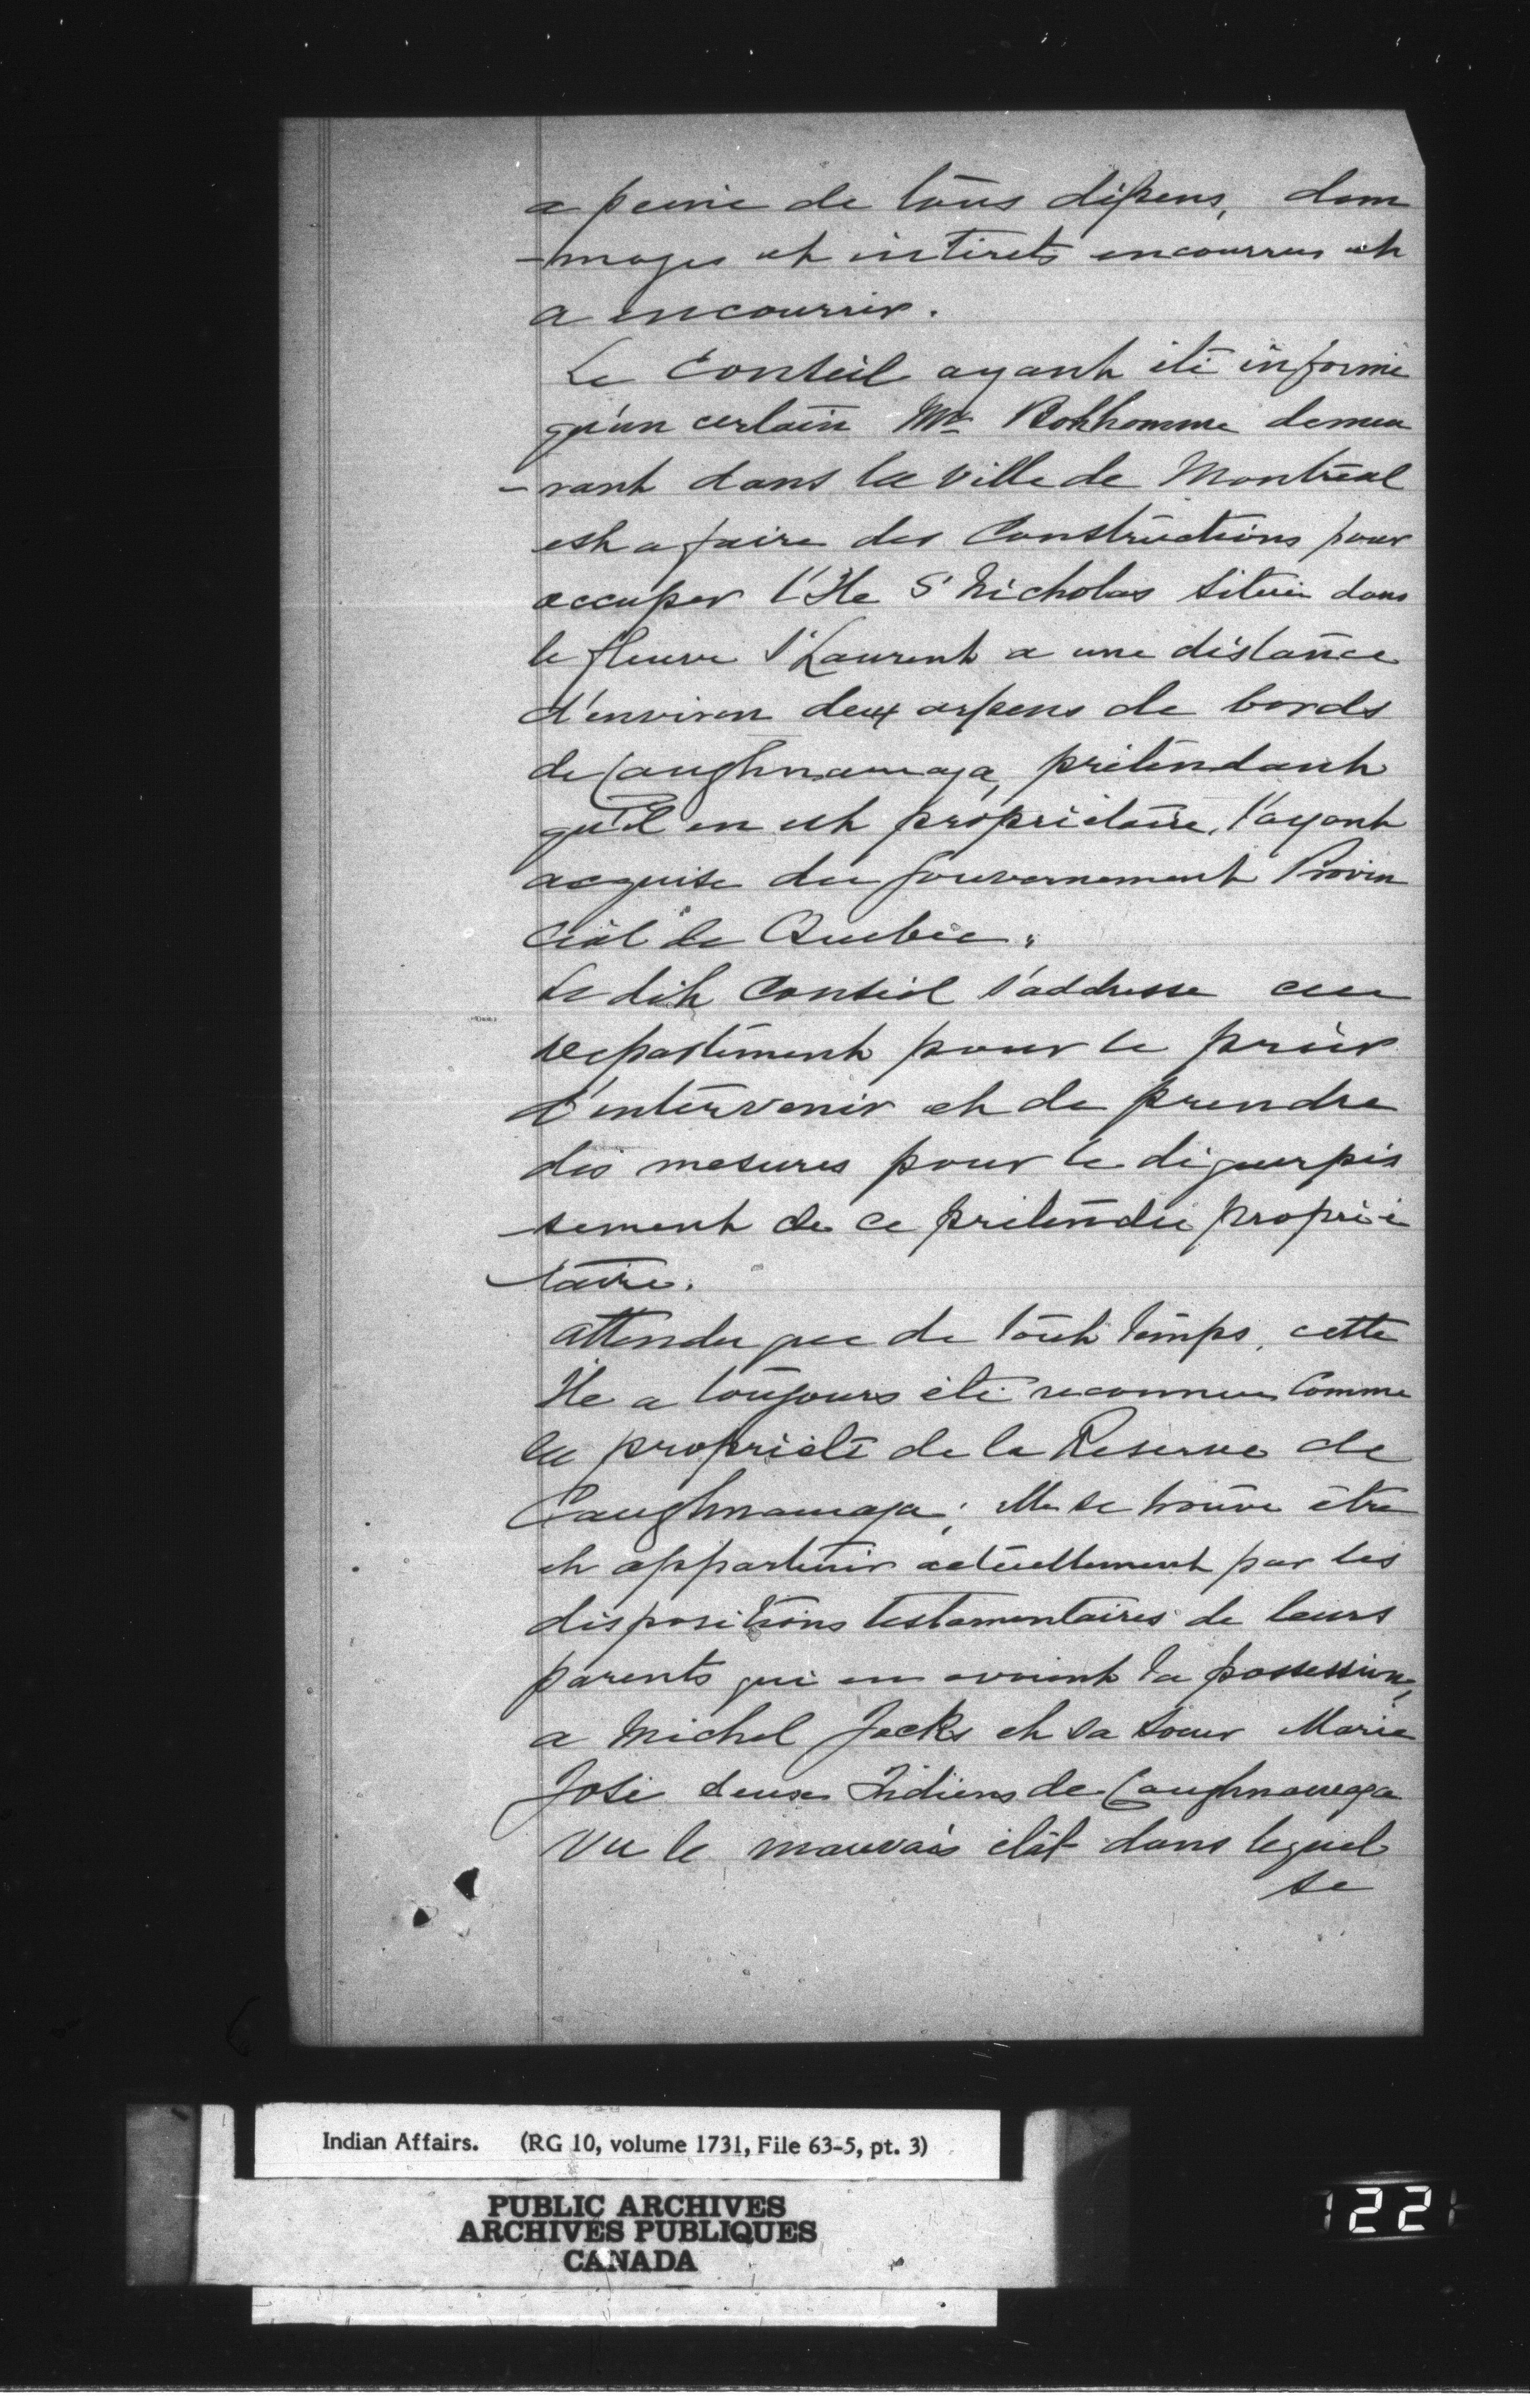 a peine de tous dépens, dom
-mages et intérets encourrus et
a encourrir.
Le Conseil ayant été informé
qu'un certain Mr Bonhomme demeu
-rant dans la ville de Montréal
est a faire des Constructions pour
occuper l'Ile St Nicholas située dans
le fleuve St Laurent a une distance
d'environ deux arpens de bords
de Caughnawaga, prétendant
qu'il en est propriétaire, l'ayant
acquise du Gouvernement Provin
cial de Quebec.
Le dit Conseil s'addresse au
Département pour le prier
d'intervenir et de prendre
des mesures pour le déguerpis
sement de ce prétendu proprié
taire.
Attendu que de tout temps, cette
Ile a toujours été reconnue Comme
la propriété de la Reserve de
Caughnawaga; elle se trouve être
et appartenir actuellement par les
dispositions testamentaires de leurs
parents qui en avaient la possession,
a Michel Jacks et sa soeur Marie
José deux Indiens de Caughnawaga
Vu le mauvais état dans lequel
se
Indian Affairs. (RG 10, volume 1731, File 63-5, pt. 3)
PUBLIC ARCHIVES
ARCHIVES PUBLIQUES
CANADA
1221